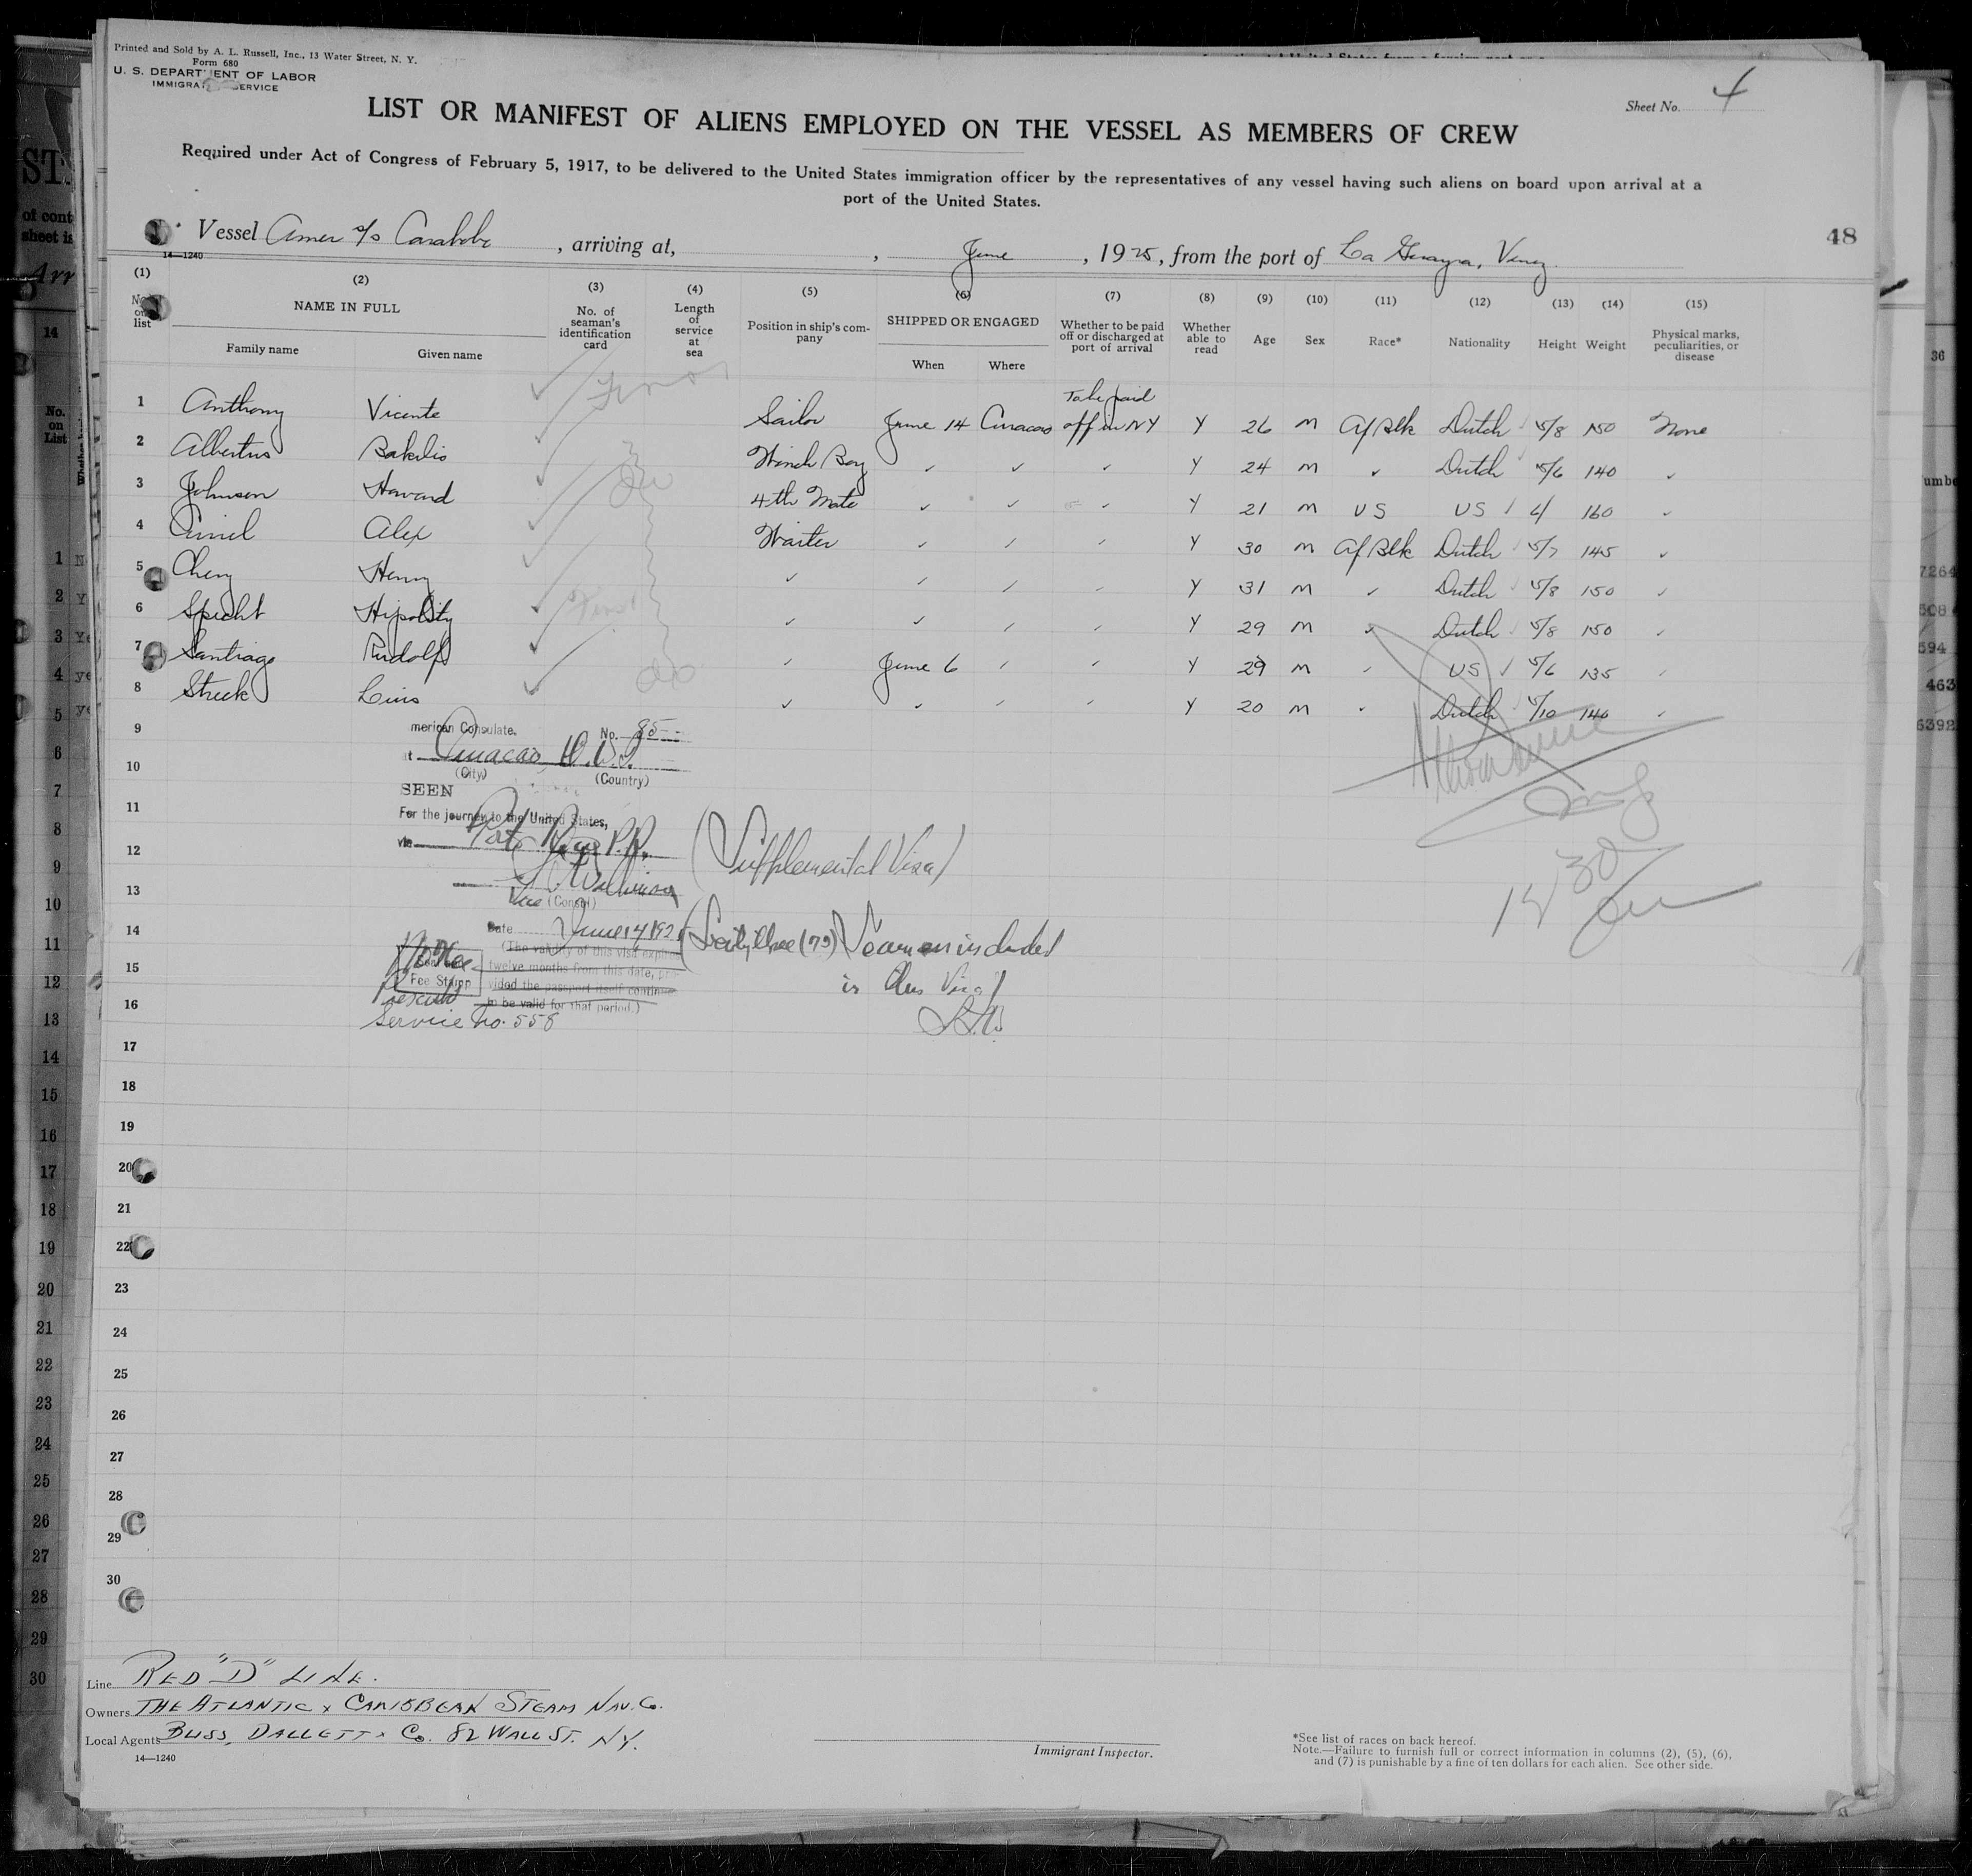 Printed and Sold by A. L. Russell, Inc., 13 Water Street, N. Y.
Form 680
U. S. DEPARTMENT OF LABOR
IMMIGRATION SERVICE
Sheet No. 4
LIST OR MANIFEST OF ALIENS EMPLOYED ON THE VESSEL AS MEMBERS OF CREW
Required under Act of Congress of February 5, 1917, to be delivered to the United States immigration officer by the representatives of any vessel having such aliens on board upon arrival at a
port of the United States.
48
Vessel Amer s/s Carabobo, arriving at, , June, 1925, from the port of La Guayra, Venez
14—1240
(1) (2) (3) (4) (5) (6) (7) (8) (9) (10) (11) (12) (13) (14) (15)
No. on list NAME IN FULL Family name Given name No. of seaman's identification card Length of service at sea Position in ship's company SHIPPED OR ENGAGED When Where Whether to be paid off or discharged at port of arrival Whether able to read Age Sex Race* Nationality Height Weight Physical marks, peculiarities, or disease
To be paid
1 Anthony Vicente Sailor June 14 Curacao off in NY Y 26 M Af Blk Dutch 5/8 150 None
2 Albertus Bakilio Winch Boy ✓ ✓ ✓ Y 24 M ✓ Dutch 5/6 140 ✓
3 Johnson Havard 4th Mate ✓ ✓ ✓ Y 21 M US US 6/ 160 ✓
4 Alex Waiter ✓ ✓ ✓ Y 30 M Af Blk Dutch 5/7 145 ✓
5 Henry ✓ ✓ ✓ ✓ Y 31 M ✓ Dutch 5/8 150 ✓
6 Specht Hipolity ✓ ✓ ✓ ✓ Y 29 M ✓ Dutch 5/8 150 ✓
7 Santiago Rudolf ✓ June 6 ✓ ✓ Y 29 M ✓ US 5/6 135 ✓
8 Streek Luis ✓ ✓ ✓ ✓ Y 20 M ✓ Dutch 5/10 140 ✓
9
merican Consulate. No. 85
10
t Curacao, D.W.I.
(City) (Country)
SEEN
11
For the journey to the United States,
via Porto Rico P.R.
12
(Supplemental Visa)
13
Vice (Consul)
14
Date June 14 192
(The validity of this visa expires
(79) Seamen included
15
No Fee
twelve months from this date, pro-
Fee Stamp
vided the passport itself continues
in this Visa)
16
to be valid for that period.)
Service No. 558
17
18
19
20
21
22
23
24
25
26
27
28
29
30
Line RED "D" LINE.
Owners THE ATLANTIC & CARIBBEAN STEAM NAV. Co.
Local Agents BLISS, DALLETT & Co. 82 WALL ST. N.Y.
14—1240
Immigrant Inspector.
*See list of races on back hereof.
Note.—Failure to furnish full or correct information in columns (2), (5), (6),
and (7) is punishable by a fine of ten dollars for each alien. See other side.